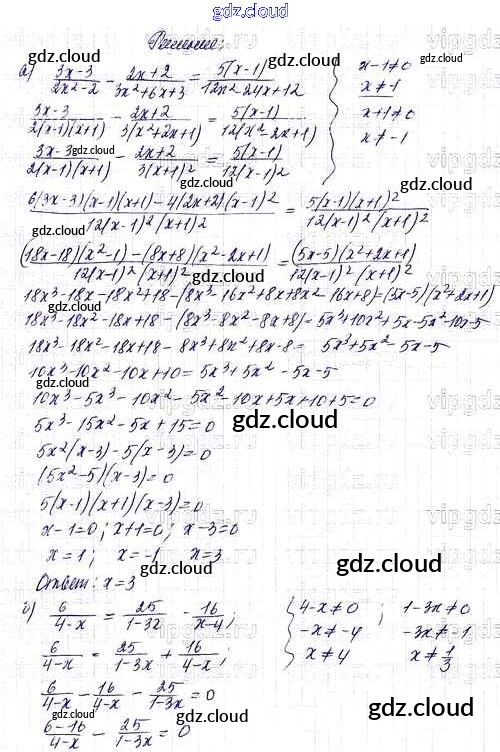 gdz.cloud
Решение:
а) (3x-3)/(2x²-2) - (2x+2)/(3x²+6x+3) = 5(x-1)/(12x²-24x+12) { x-1≠0
x≠1
(3x-3)/(2(x-1)(x+1)) - (2x+2)/(3(x²+2x+1)) = 5(x-1)/(12(x²-2x+1)) x+1≠0
x≠-1
(3x-3)/(2(x-1)(x+1)) - (2x+2)/(3(x+1)²) = 5(x-1)/(12(x-1)²)
(6(3x-3)(x-1)(x+1)-4(2x+2)(x-1)²)/(12(x-1)²(x+1)²) = 5(x-1)(x+1)²/(12(x-1)²(x+1)²)
((18x-18)(x²-1)-(8x+8)(x²-2x+1))/(12(x-1)²(x+1)²) = (5x-5)(x²+2x+1)/(12(x-1)²(x+1)²)
18x³-18x-18x²+18-(8x³-16x²+8x+8x²-16x+8)=(5x-5)(x²+2x+1)
18x³-18x²-18x+18-(8x³-8x²-8x+8)=5x³+10x²+5x-5x²-10x-5
18x³-18x²-18x+18-8x³+8x²+8x-8= 5x³+5x²-5x-5
10x³-10x²-10x+10=5x³+5x²-5x-5
10x³-5x³-10x²-5x²-10x+5x+10+5=0
5x³-15x²-5x+15=0
5x²(x-3)-5(x-3)=0
(5x²-5)(x-3)=0
5(x-1)(x+1)(x-3)=0
x-1=0; x+1=0; x-3=0
x=1; x=-1 x=3
Ответ: x=3
б) 6/(4-x) = 25/(1-3x) - 16/(x-4); { 4-x≠0 ; 1-3x≠0
-x≠-4 -3x≠-1
6/(4-x) = 25/(1-3x) + 16/(4-x); x≠4 x≠1/3
6/(4-x) - 16/(4-x) - 25/(1-3x) =0
(6-16)/(4-x) - 25/(1-3x) = 0
gdz.cloud